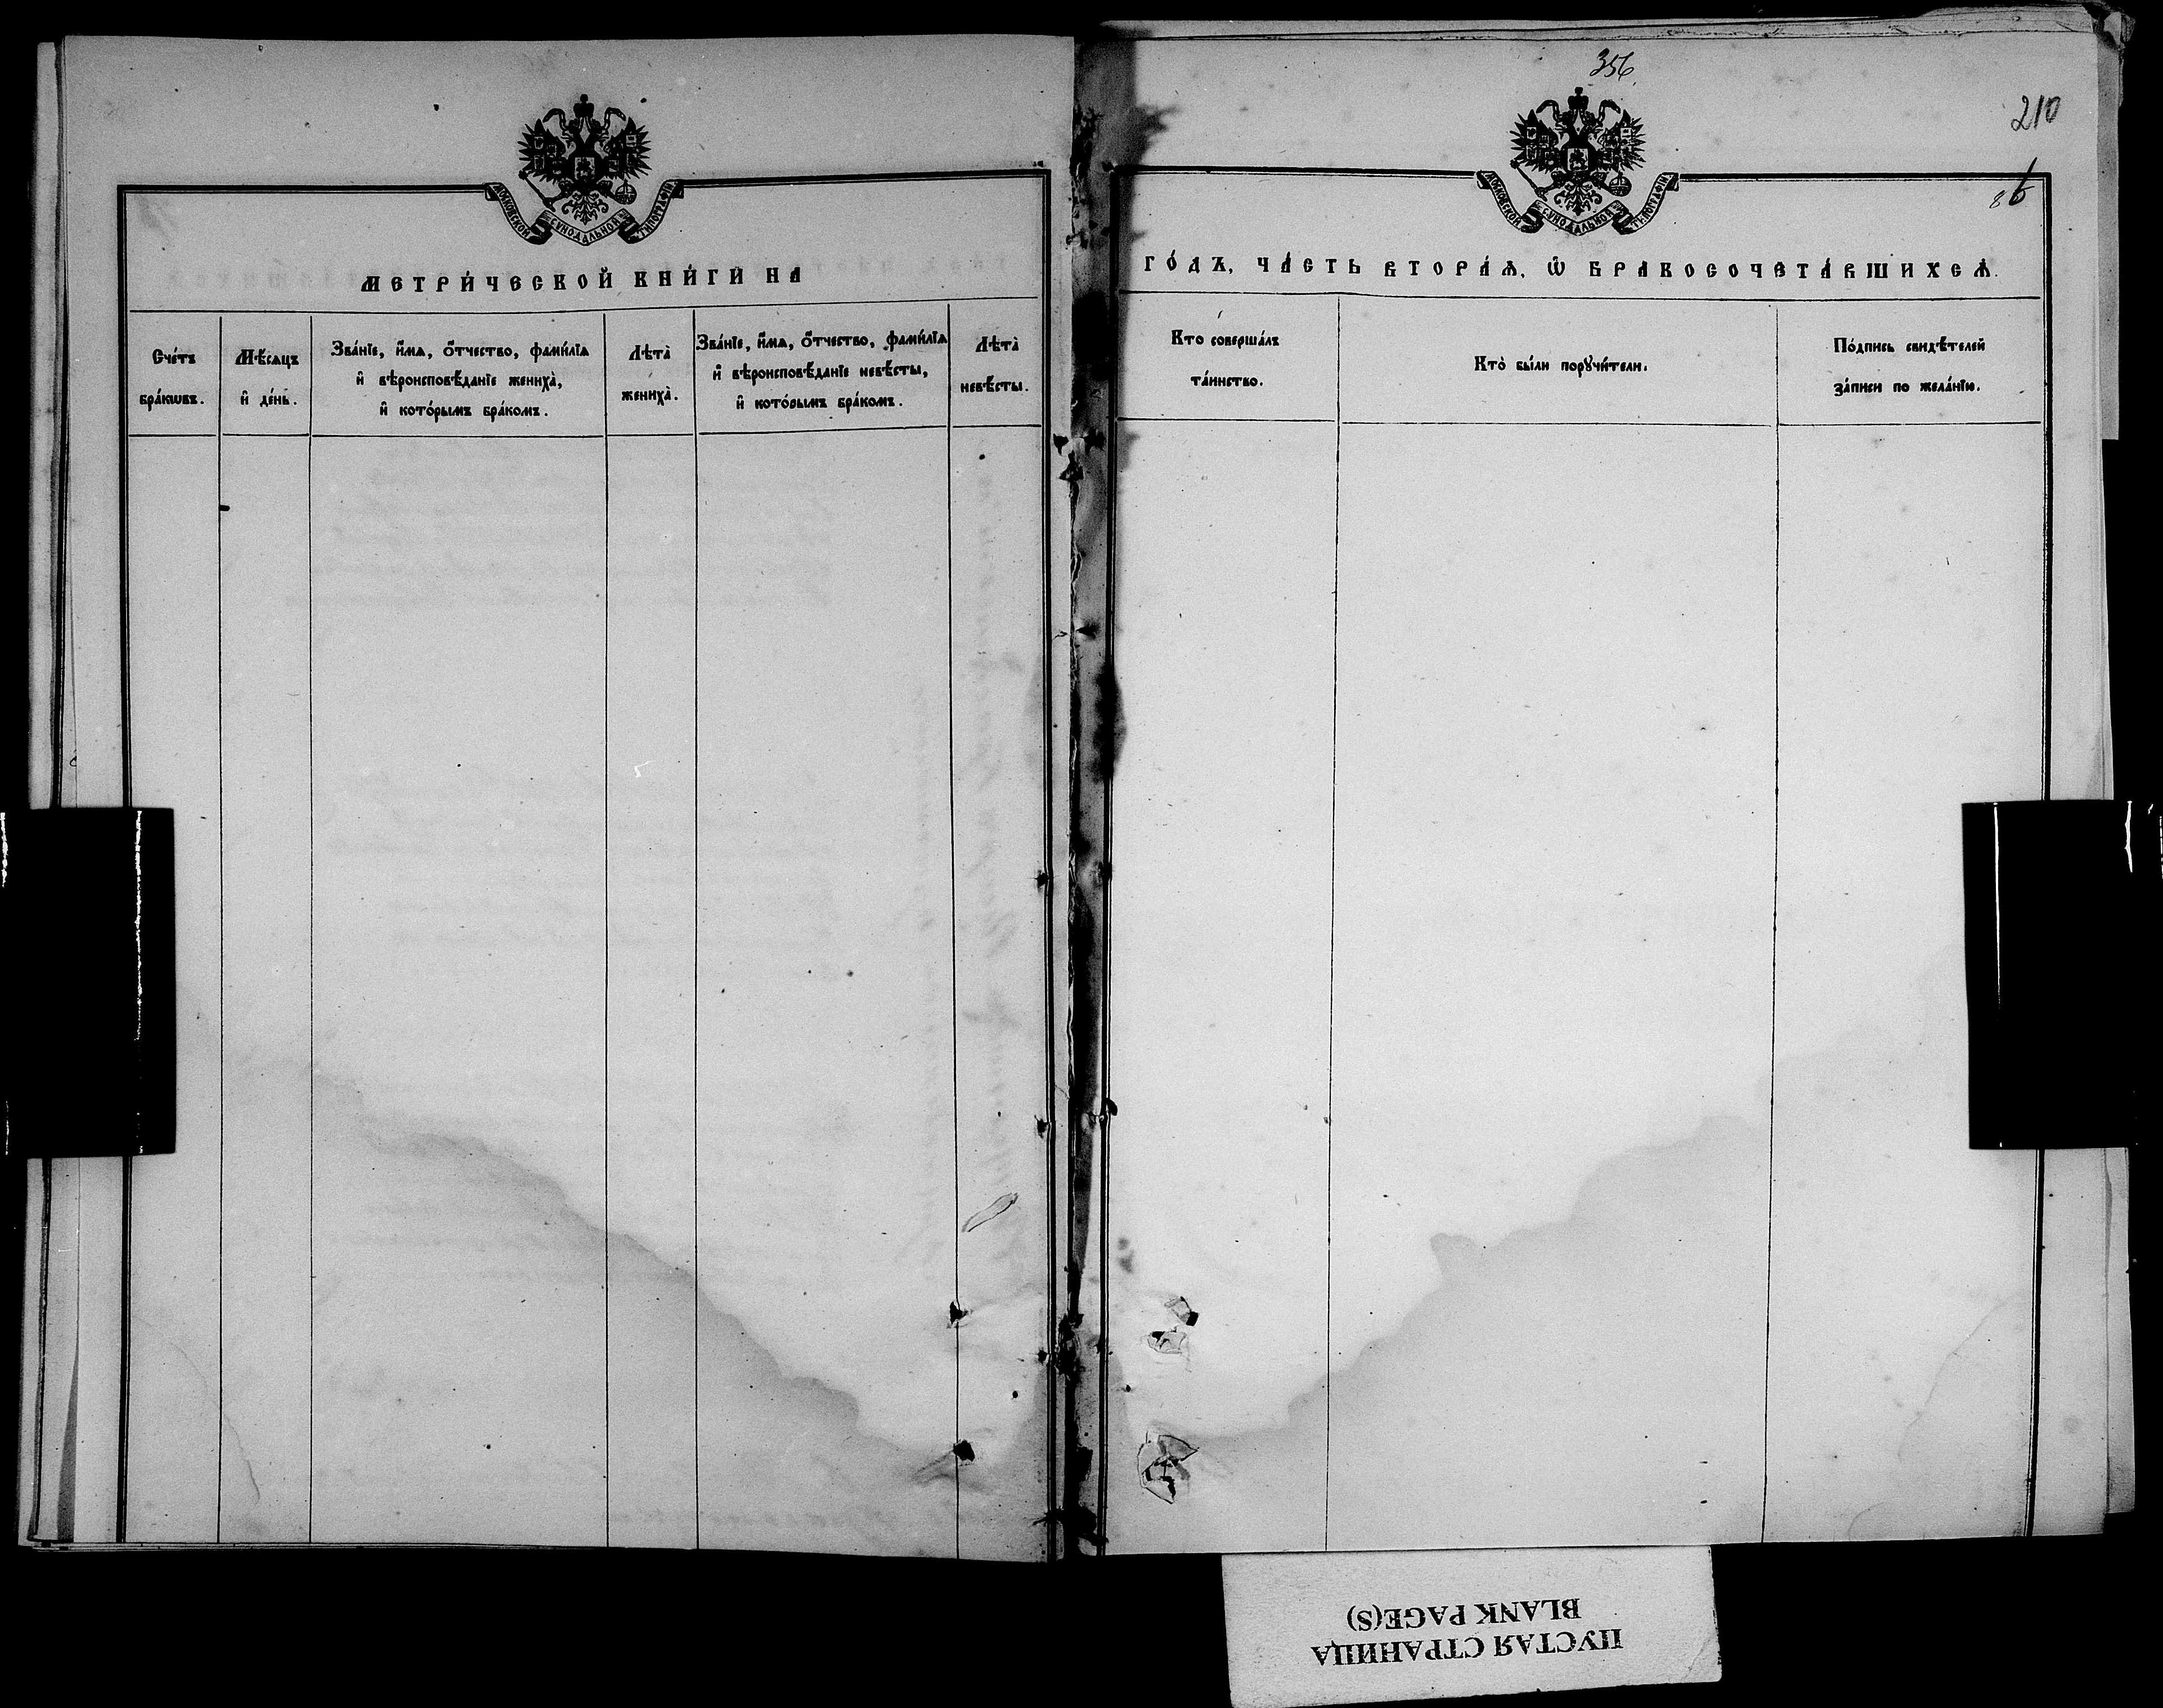 МОСКОВСКОЙ СѴНОДАЛЬНОЙ ТИПОГРАФІИ
МЕТРИ́ЧЕСКОЙ КНИ́ГИ НА
Сче́тъ
бра́кѡвъ.
Мѣ́сѧцъ
и҆ де́нь.
Зва́нїе, и҆́мѧ, ѻ҆́тчество, фами́лїѧ
и҆ вѣроисповѣ́данїе женихà,
и҆ кото́рымъ бра́комъ.
Лѣтà
женихà.
Зва́нїе, и҆́мѧ, ѻ҆́тчество, фами́лїѧ
и҆ вѣроисповѣ́данїе невѣ́сты,
и҆ кото́рымъ бра́комъ.
Лѣтà
невѣ́сты.
356
210
МОСКОВСКОЙ СѴНОДАЛЬНОЙ ТИПОГРАФІИ
ГО́ДЪ, ЧА́СТЬ ВТОРА́Ѧ, Ѡ҆ БРАКОСОЧЕТА́ВШИХСѦ.
Кто соверша́лъ
та́инство.
Ктò бы́ли порꙋчи́тели.
По́дпись свидѣ́телей
за́писи по жела́нїю.
ПУСТАЯ СТРАНИЦА
BLANK PAGE(S)